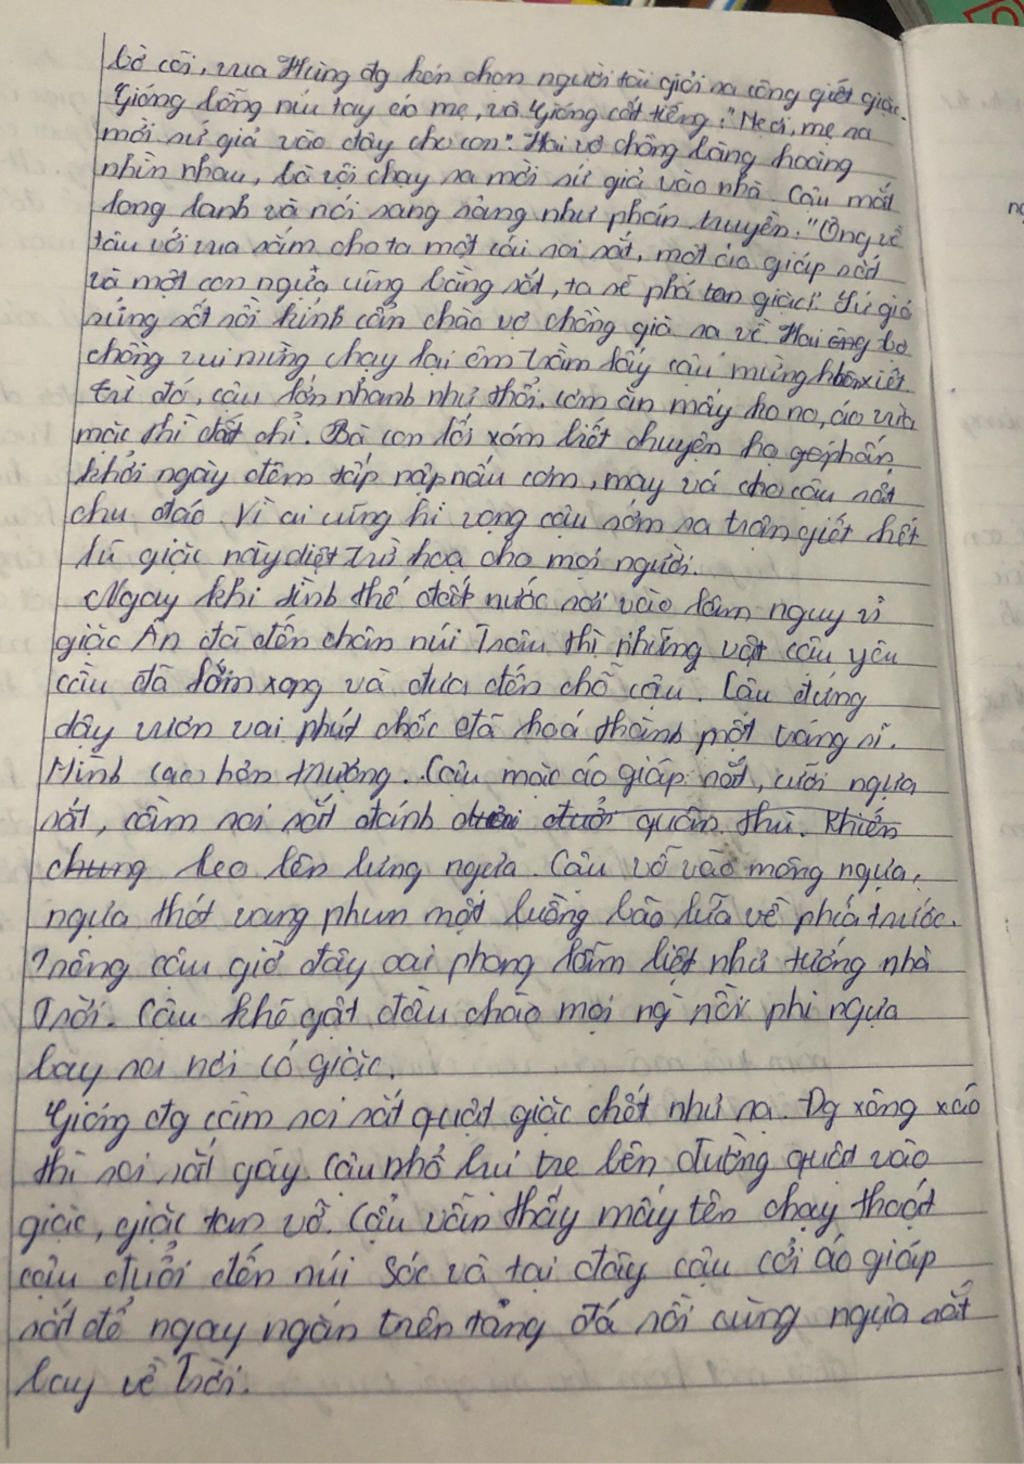 bờ cõi, vua Hùng đg kén chọn người tài giỏi ra công giết giặc.
Gióng bỗng níu tay áo mẹ, và Gióng cất tiếng: "Mẹ ơi, mẹ ra
mời sứ giả vào đây cho con". Hai vợ chồng bàng hoàng
nhìn nhau, bà vội chạy ra mời sứ giả vào nhà. Cậu mắt
long lanh và nói sang sảng như phán truyền: "Ông về
tâu với vua sắm cho ta một cái roi sắt, một áo giáp sắt
và một con ngựa cũng bằng sắt, ta sẽ phá tan giặc". Sứ giả
sửng sốt rồi kính cẩn chào vợ chồng già ra về. Hai ông bà
chồng vui mừng chạy lại ôm trầm lấy cậu mừng xiết
từ đó, cậu lớn nhanh như thổi. cơm ăn mấy ko no, áo vừa
mặc thì đứt chỉ. Bà con lối xóm biết chuyện họ gọi phấn
khởi ngày đêm tấp nập nấu cơm, may vá cho cậu rất
chu đáo. Vì ai cũng hi vọng cậu sớm ra trận giết hết
lũ giặc này diệt trừ hoạ cho mọi người.
Ngay khi tình thế đất nước rơi vào lâm nguy vì
giặc Ân đã đến chân núi Trâu thì những vật cậu yêu
cầu đã làm xong và đưa đến chỗ cậu. Cậu đứng
dậy vươn vai phút chốc đã hoá thành một tráng sĩ.
Mình cao hơn trượng. Cậu mặc áo giáp sắt, cưỡi ngựa
sắt, cầm roi sắt đánh đuổi quân thù. Khiến
chung leo lên lưng ngựa. Cậu vỗ vào mông ngựa,
ngựa thét vang phun một luồng bão lửa về phía trước.
Trông cậu giờ đây oai phong lẫm liệt như tướng nhà
Trời. Cậu khẽ gật đầu chào mọi ng rồi phi ngựa
bay ra nơi có giặc.
Gióng đg cầm roi sắt quật giặc chết như rạ. Đg xông xáo
thì roi sắt gãy. Cậu nhổ bụi tre bên đường quật vào
giặc, giặc tan vỡ. Cậu vẫn thấy mấy tên chạy thoát
cậu đuổi đến núi Sóc và tại đây cậu cởi áo giáp
sắt để ngay ngắn trên tảng đá rồi cùng ngựa sắt
bay về Trời.